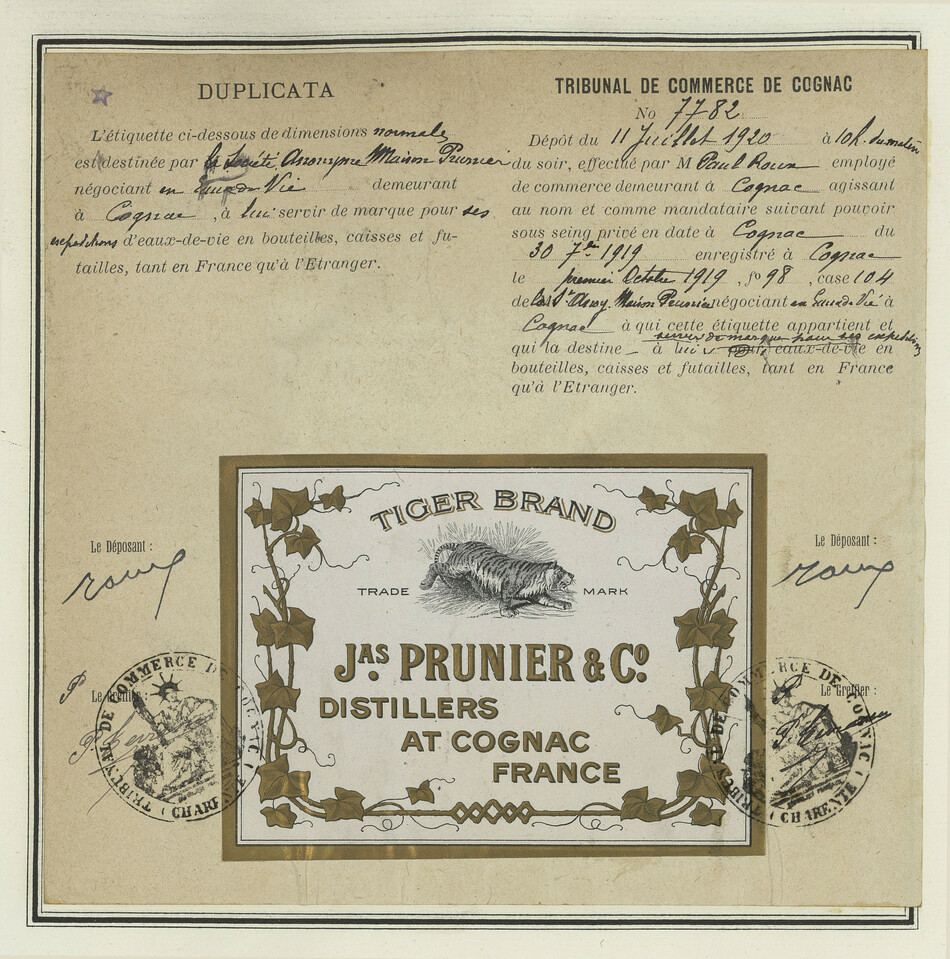 DUPLICATA
L'étiquette ci-dessous de dimensions normales
est destinée par la Société Anonyme Maison Prunier
négociant en Eaux de Vie demeurant
à Cognac, à lui servir de marque pour ses
expéditions d'eaux-de-vie en bouteilles, caisses et fu-
tailles, tant en France qu'à l'Etranger.
TRIBUNAL DE COMMERCE DE COGNAC
No 7782
Dépôt du 11 Juillet 1920 à 10h. du matin
du soir, effectué par M Paul Roux employé
de commerce demeurant à Cognac agissant
au nom et comme mandataire suivant pouvoir
sous seing privé en date à Cognac du
30 7bre 1919 enregistré à Cognac
le premier Octobre 1919, fo 98, case 104
de la Sté Anony. Maison Prunier négociant en Eaux de Vie à
Cognac à qui cette étiquette appartient et
servir de marque pour ses expéditions
qui la destine à lui eaux-de-vie en
bouteilles, caisses et futailles, tant en France
qu'à l'Etranger.
TIGER BRAND
TRADE MARK
JAS. PRUNIER & CO.
DISTILLERS
AT COGNAC
FRANCE
Le Déposant :
Roux
Le Greffier :
TRIBUNAL DE COMMERCE DE COGNAC
(CHARENTE)
Le Déposant :
Roux
Le Greffier :
TRIBUNAL DE COMMERCE DE COGNAC
(CHARENTE)